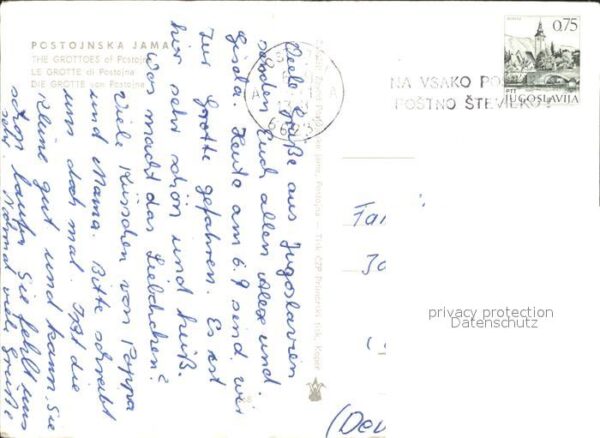 POSTOJNSKA JAMA
THE GROTTOES of Postojna
LE GROTTE di Postojna
DIE GROTTE von Postojna
Viele Grüße aus Jugoslavien
senden Euch allen Alex und
Gisela. Heute am 6.9 sind wir
zur Grotte gefahren. Es ist
hier sehr schön und heiß.
Was macht das Liebchen?
Viele Küsschen von Pappa
und Mama. Bitte schreibt
uns doch mal. Ist die
Kleine gut und kann Sie
schon laufen Sie fehlt uns
sehr. Nochmal viele Grüße
Postojna – Tisk ČZP Primorski tisk, Koper
6623
NA VSAKO PO
POŠTNO ŠTEVILKO
0,75
PTT JUGOSLAVIJA
Fa
privacy protection
Datenschutz
(Deu